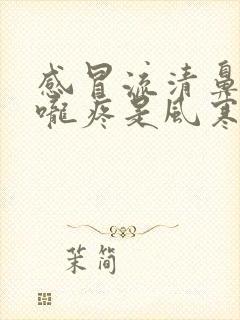 感冒流清鼻
嚨疼是風寒
茉簡